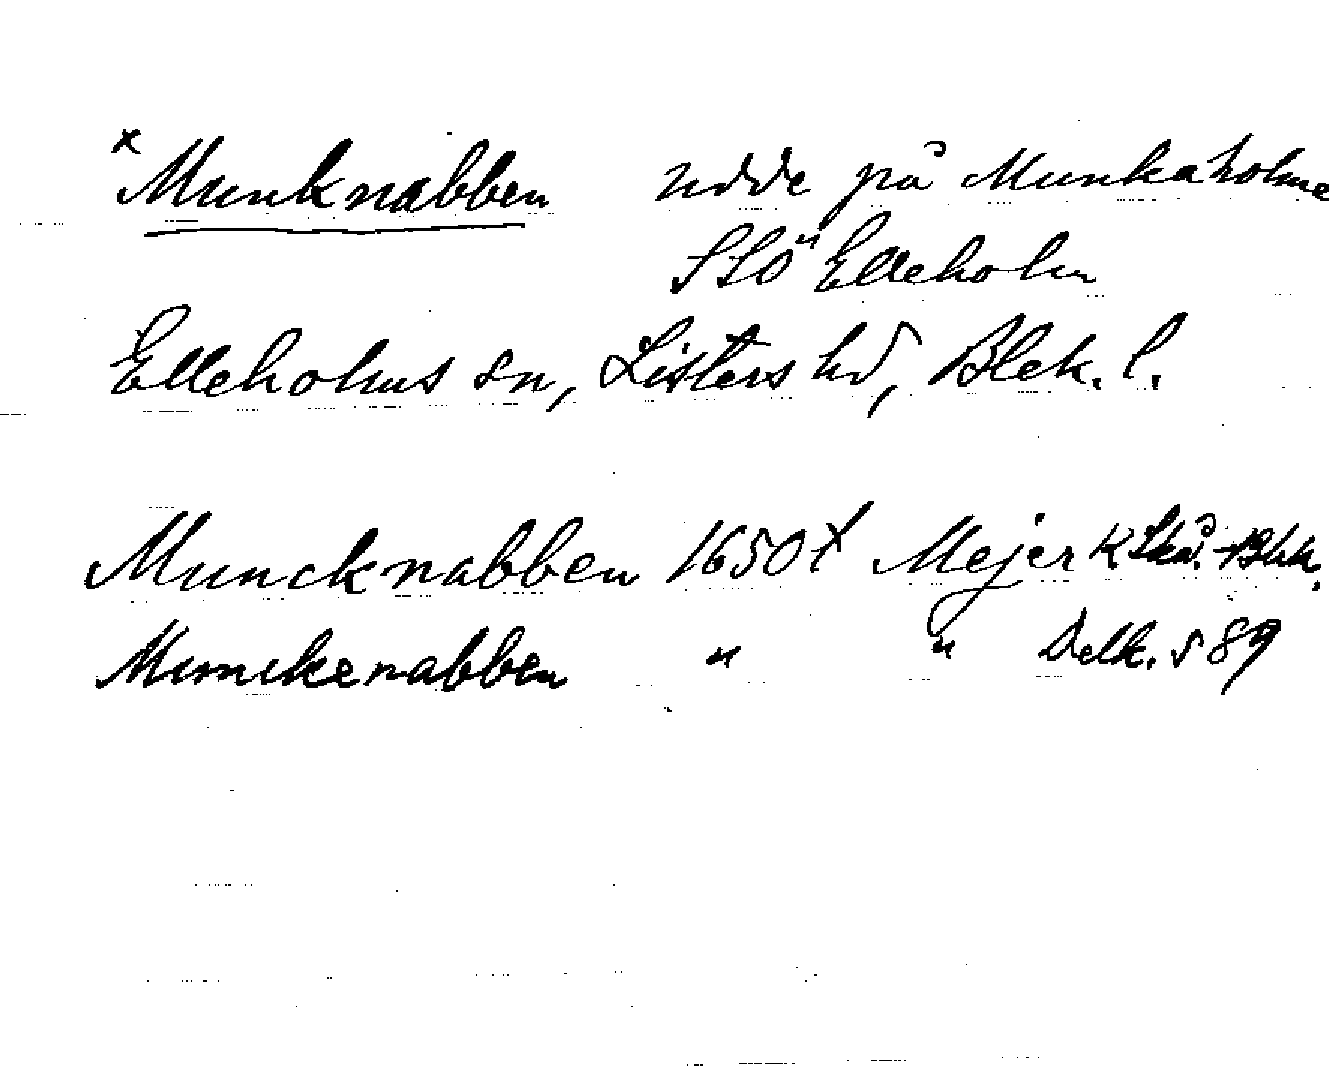 x Munknabben udde på Munkaholme
SSÖ Elleholm
Elleholms sn, Listers hd, Blek. l.
Muncknabben 1650t Mejer K Skå.-Blek.
Munckenabben " " Delk. s 89